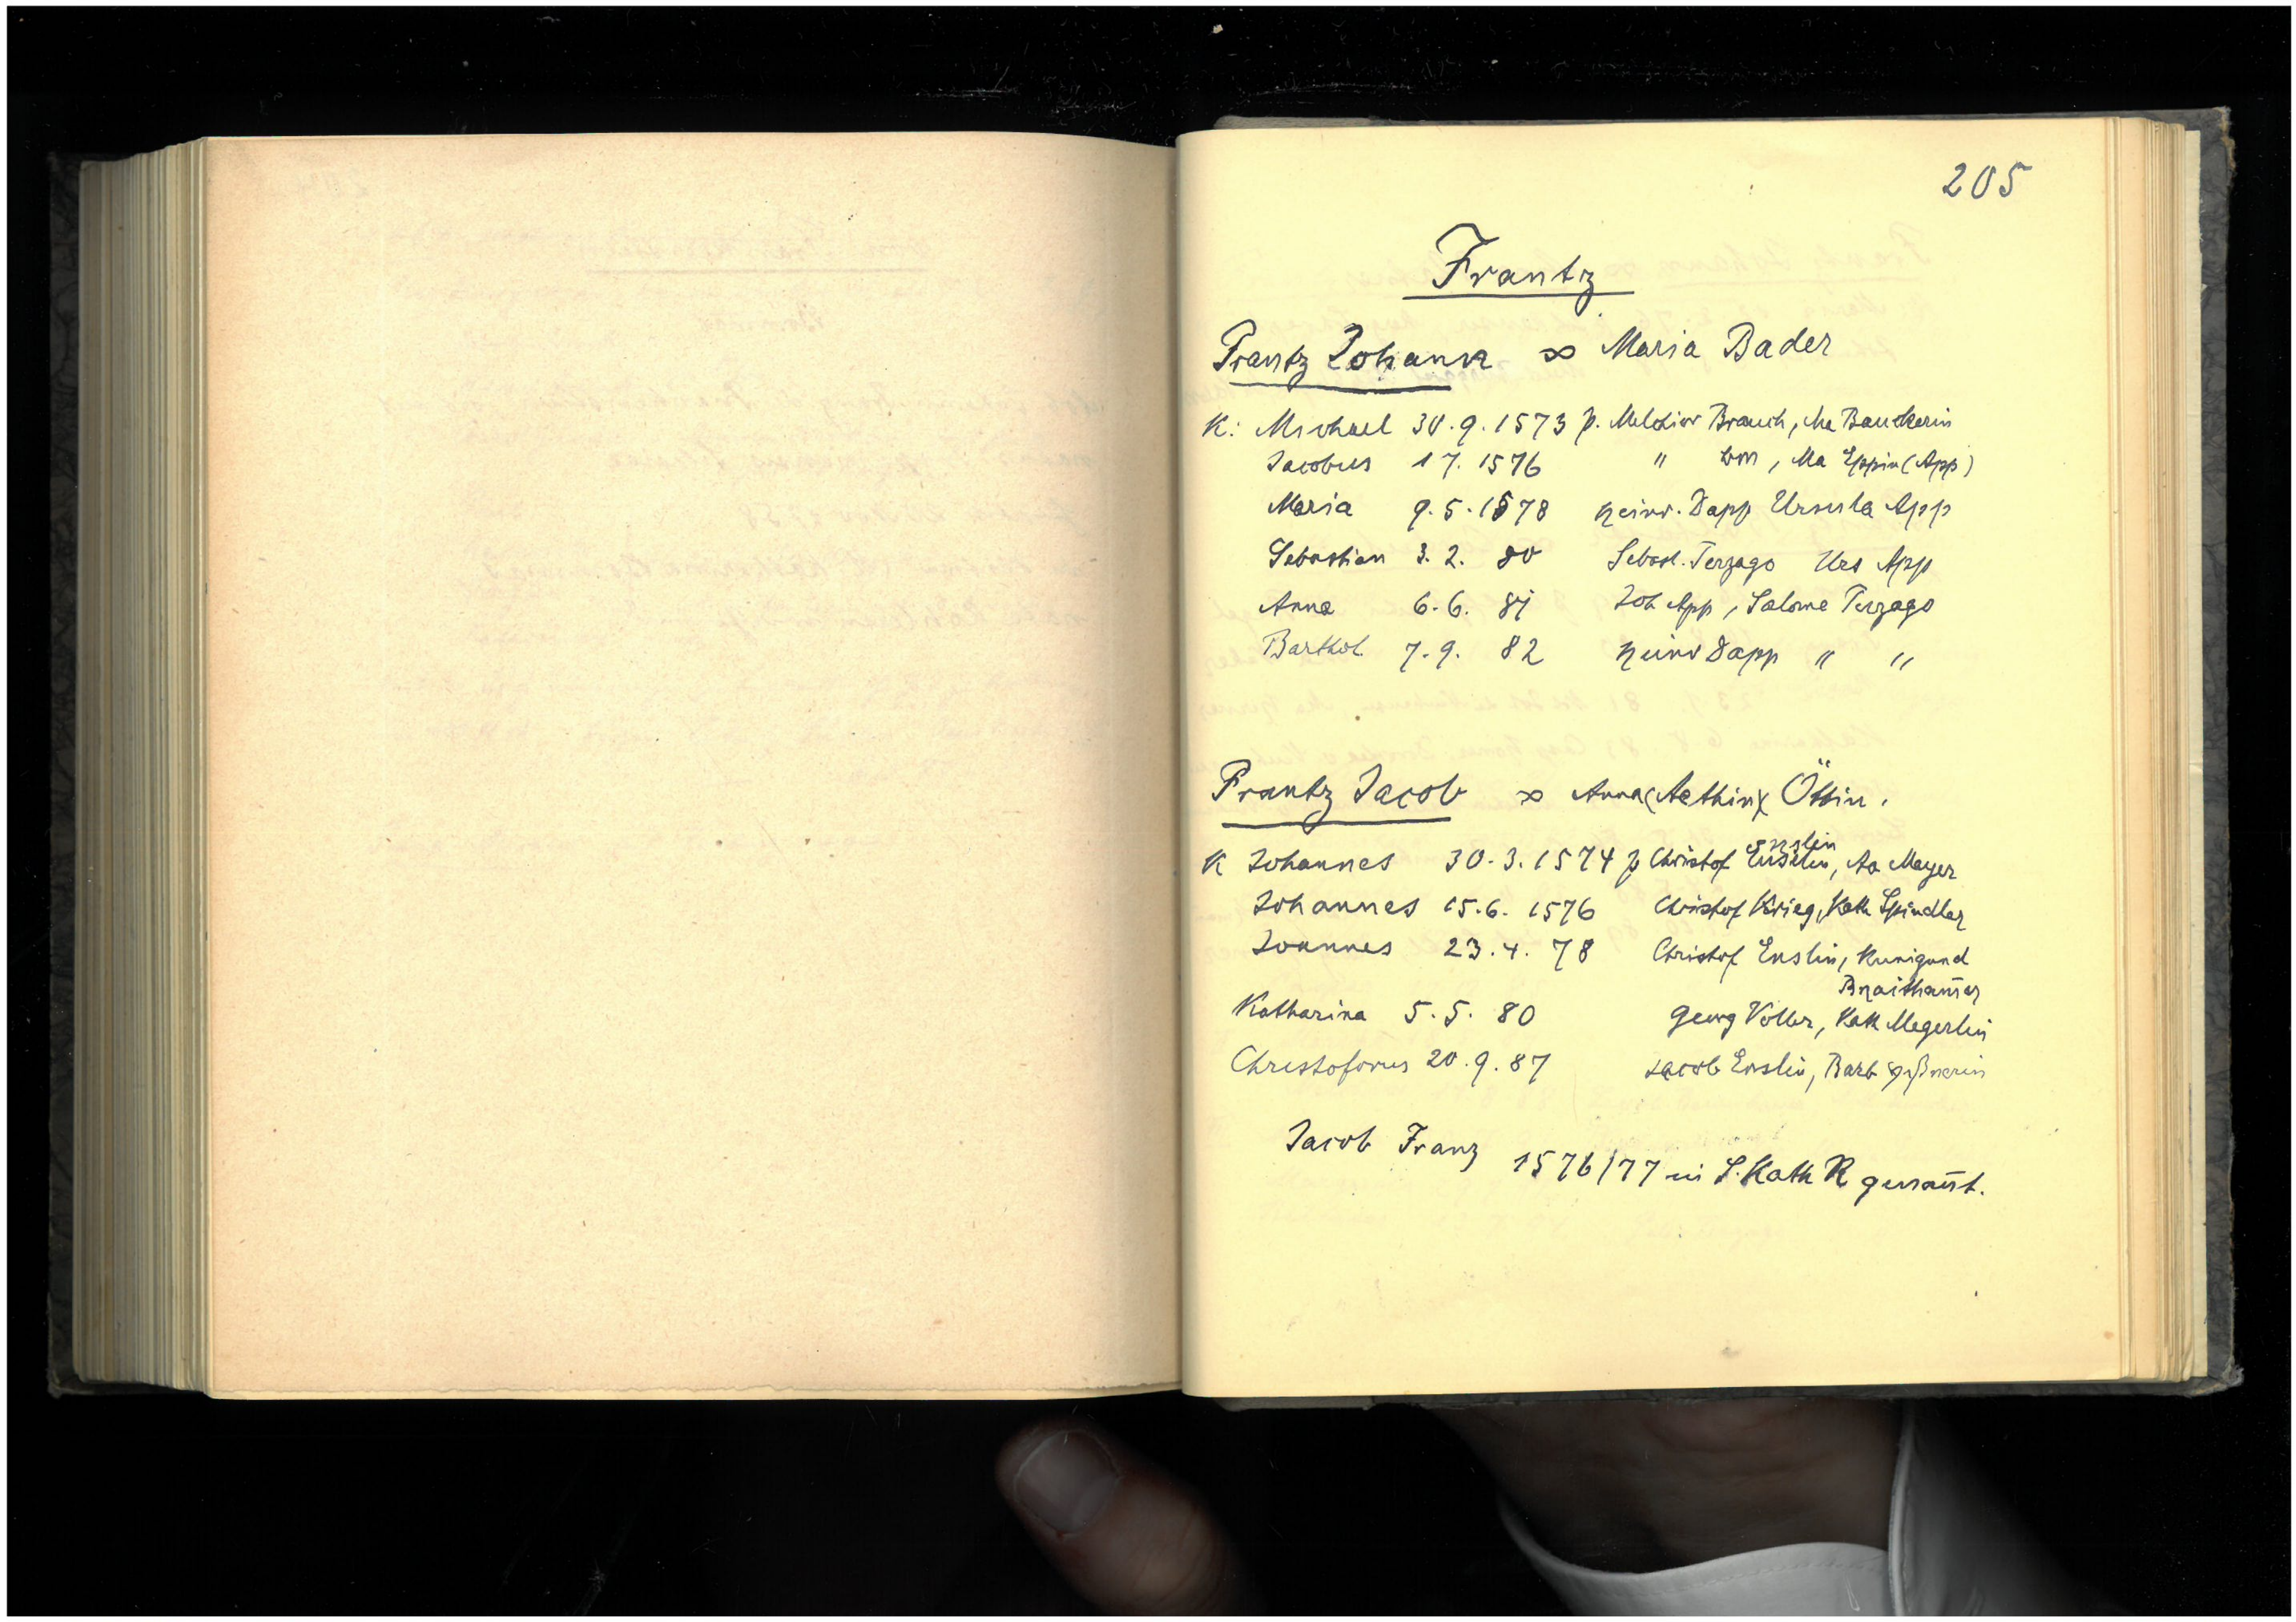 205
Frantz
Frantz Johann ∞ Maria Bader
K: Michael 30.9.1573 p. Melchior Brauch, Ma Bauckerin
Jacobus 1 7. 1576 " Ma Eppin (App)
Maria 9.5.1578 Heinr. Dapp Ursula App
Sebastian 3.2. 80 Sebast. Terzago Urs App
Anna 6.6. 81 Joh App, Salome Terzago
Barthol. 7.9. 82 Heinr Dapp " "
Frantz Jacob ∞ Anna (Aethin) Öttin.
Enslin
K Johannes 30.3.1574 p Christof Enslin, Aa Mayer
Johannes 15.6. 1576 Christof Krieg, Kath Spindler
Joannes 23.4. 78 Christof Enslin, Kunigund
Braitham̄er
Katharina 5.5. 80 Georg Voller, Kath Megerlin
Christoforus 20.9.87 Jacob Enslin, Barb
Jacob Franz 1576/77 in S. Kath R genan̄t.